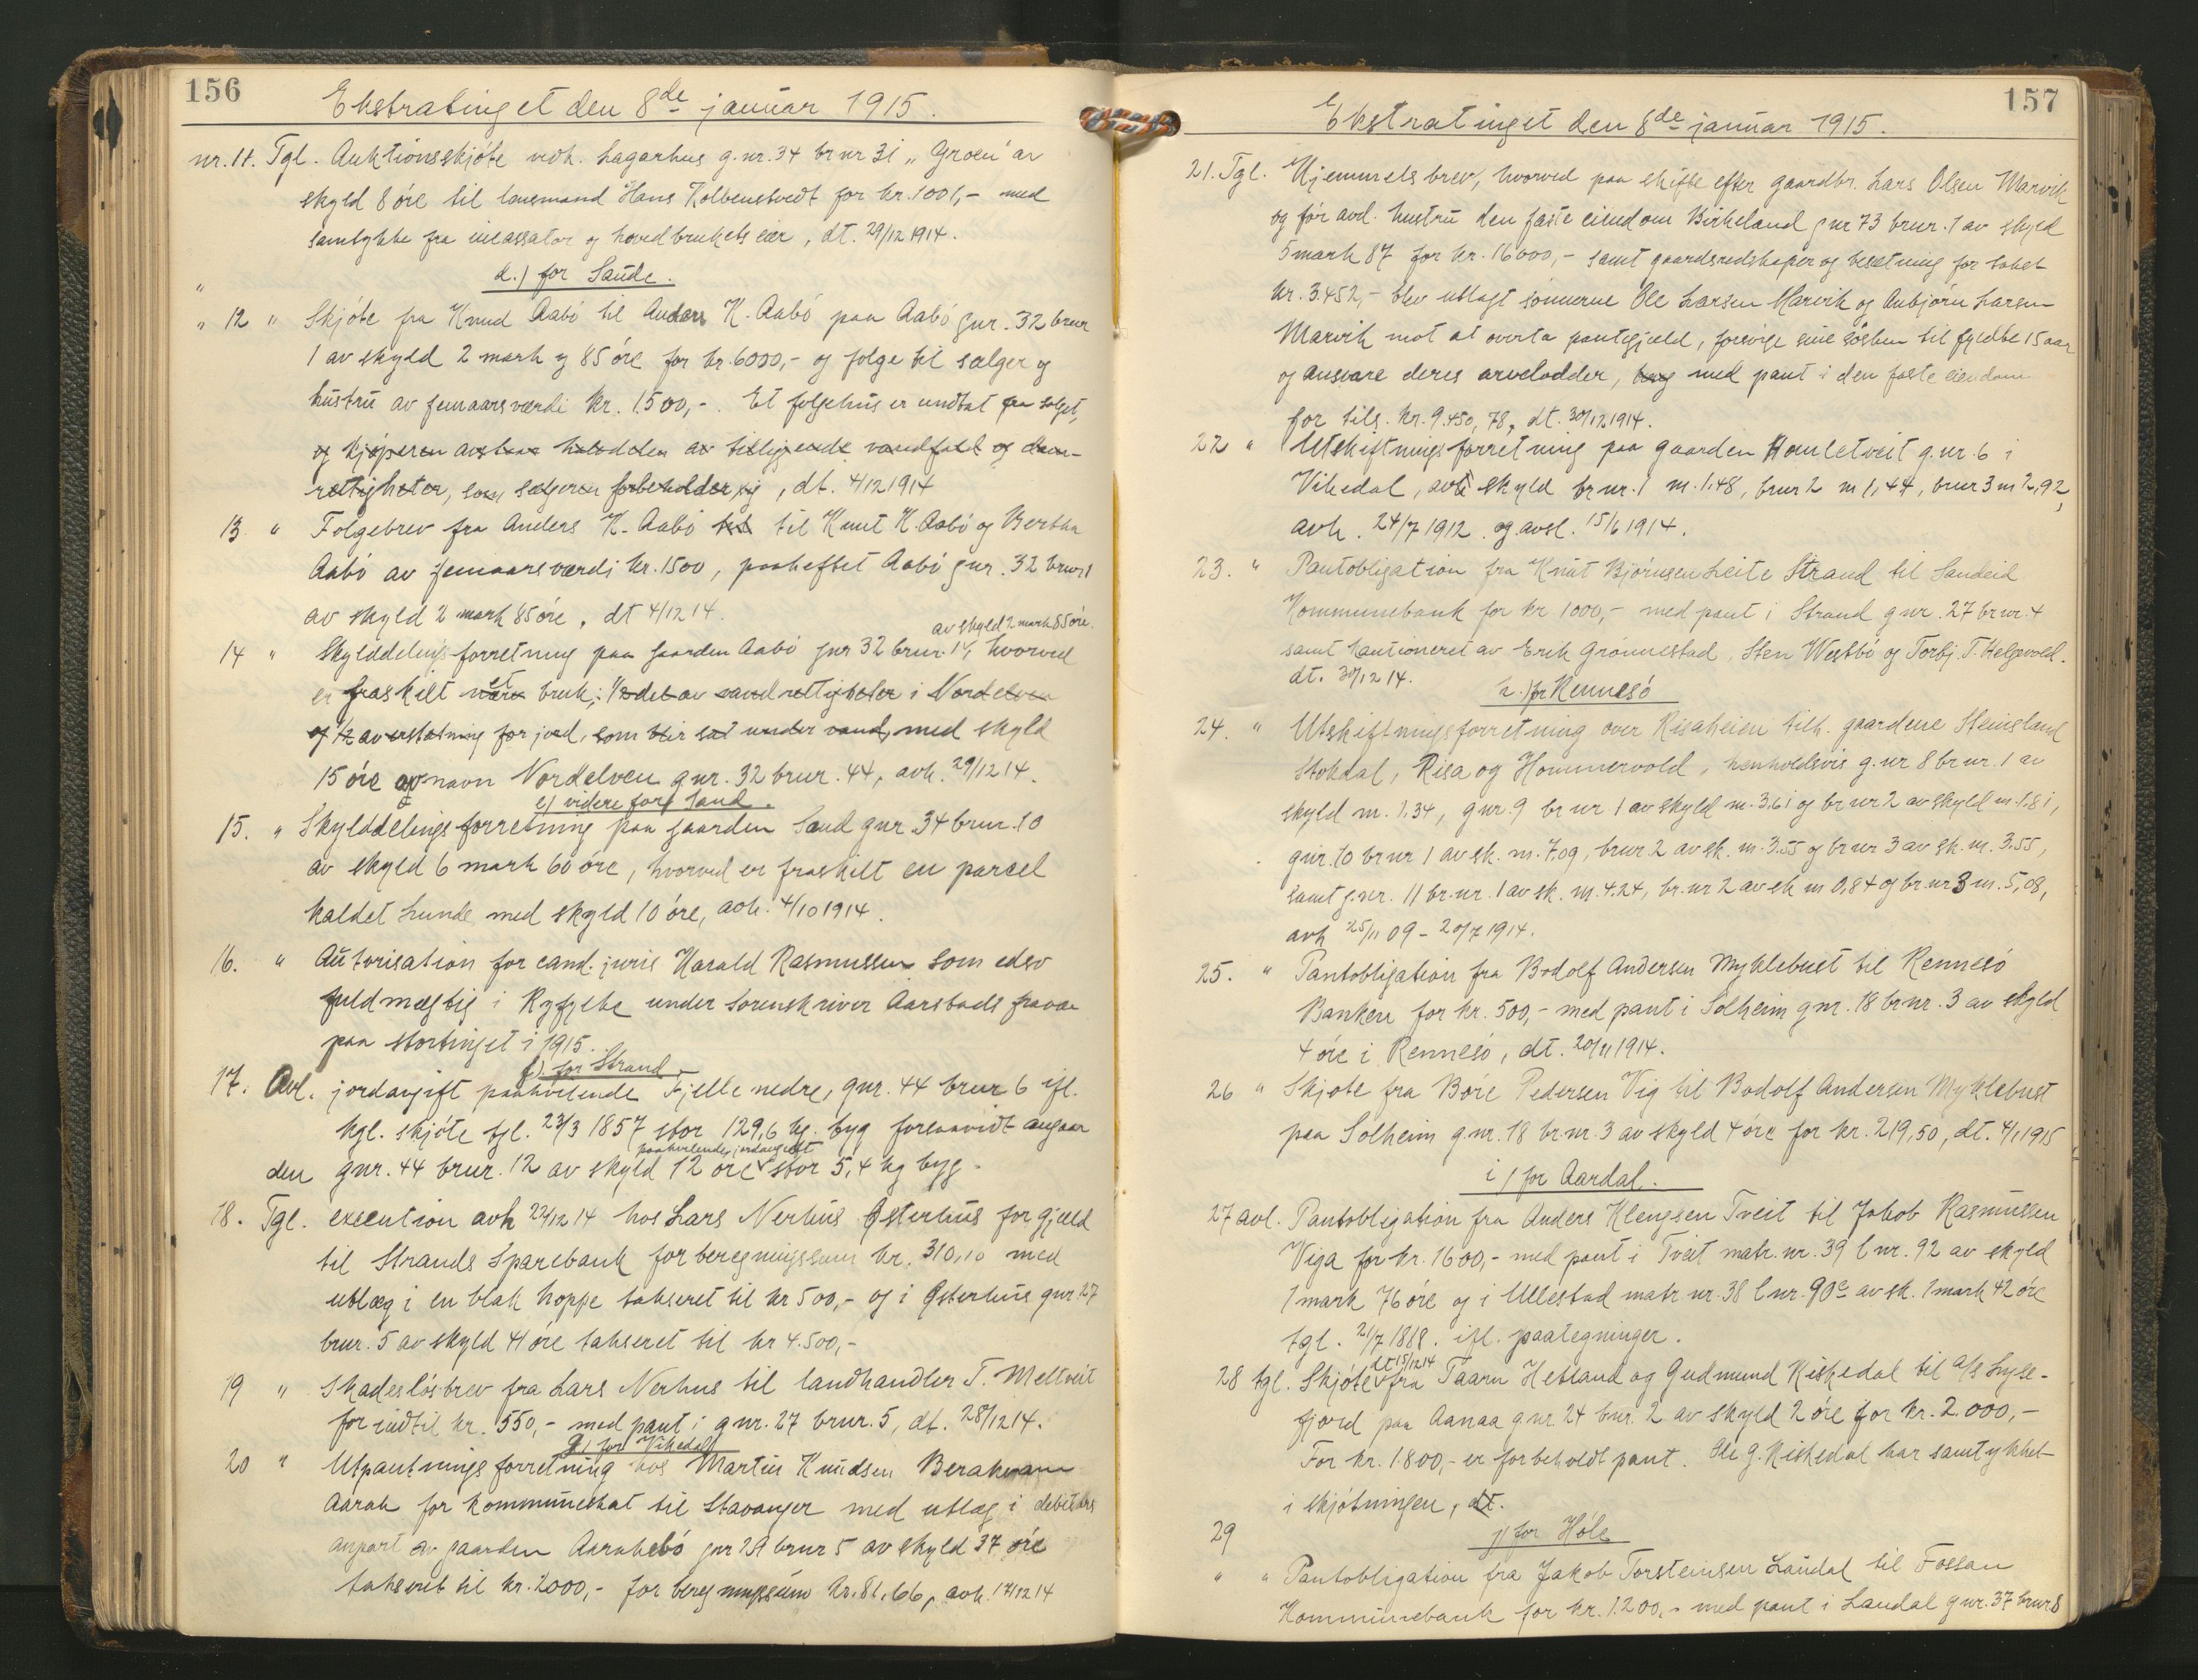 156
Ekstratinget den 8de januar 1915.
nr. 11. Tgl. Auktionsskjöte vedk. Lagarhus g.nr. 34 br nr 31 „Groen" av
skyld 8 öre til lensmand Hans Kolbenstvedt for kr. 1001,- med
samtykke fra incassator og hovedbrukets eier, dt. 29/12 1914.
d.) for Saude.
„ 12 " Skjöte fra Knud Aabö til Anders K. Aabö paa Aabö gnr. 32 brnr
1 av skyld 2 mark og 85 öre for kr. 6000,- og folge til sælger og
hustru av femaarsværdi kr. 1500,-. Et folgehus er undtat fra salget,
og kjöperen avstaar halvdelen av tilliggende vandfald og dam-
rettigheter, som sælgeren forbeholder sig, dt. 4/12 1914
13 " Folgebrev fra Anders K. Aabö til til Knut K. Aabö og Bertha
Aabö av femaarsværdi kr. 1500, paaheftet Aabö gnr. 32 brnr 1
av skyld 2 mark 85 öre, dt 4/12 14.
av skyld 2 mark 85 öre.
14 " Skylddelings-forretning paa gaarden Aabö gnr 32 brnr. 1, hvorved
er fraskilt et bruk; 1/2 del av vandrettigheter i Nordelven
og 1/2 av erstatning for jord, som blir sat under vand, med skyld
15 öre og navn Nordelven gnr. 32 brnr. 44, avh. 29/12 14.
e) videre for Sand.
15. " Skylddelingsforretning paa gaarden Sand gnr 34 brnr. 10
av skyld 6 mark 60 öre, hvorved er fraskilt en parcel
kaldet Lunde med skyld 10 öre, avh. 4/10 1914.
16. " Autorisation for cand. juris Harald Rasmussen som edsv
fuldmægtig i Ryfylke under Sorenskriver Aarstads fravær
paa stortinget i 1915.
f) for Strand
17. Avl. jordavgift paahvilende Fjelle nedre, gnr. 44 brnr 6 ifl.
kgl. skjöte tgl. 23/3 1857 stor 129,6 kg. byg forsaavidt angaar
paahvilende jordavgift
den gnr. 44 brnr. 12 av skyld 12 öre stor 5,4 kg byg.
18. Tgl. execution avh 22/12 14 hos Lars Nerhus Østerhus for gjeld
til Strands Sparebank for beregningssum kr. 310,10 med
utlæg i en blak hoppe takseret til kr 500,- og i Østerhus gnr 27
brnr. 5 av skyld 41 öre takseret til kr 4.500,-
19 " Skadeslösbrev fra Lars Nerhus til landhandler T. Meltveit
for indtil kr. 550,- med pant i gnr. 27 brnr. 5, dt. 28/12 14.
g) for Vikedal
20 " Utpantningsforretning hos Martin Knudsen Berakvam
Aarak for kommuneskat til Stavanger med utlæg i debitors
anpart av gaarden Aarakebö gnr 29 brnr 5 av skyld 37 öre
takseret til kr. 2000,- for beregningssum kr. 81,66, avh. 12/12 14
157
Ekstratinget den 8de januar 1915.
21. Tgl. Hjemmelsbrev, hvorved paa skifte efter gaardbr. Lars Olsen Marvik
og för avd. hustru den faste eiendom Birkeland gnr 73 brnr. 1 av skyld
5 mark 87 for kr. 16000,- samt gaardsredskaper og besætning for takst
kr. 3.452,- blev utlagt sönnerne Ole Larsen Marvik og Aubjörn Larsen
Marvik mot at overta pantegjæld, forsörge sine sösken til fyldte 15 aar
og ansvare deres arvelodder, med pant i den faste eiendom
for tils. kr. 9.450,78, dt. 30/12 1914.
22 " Utskiftningsforretning paa gaarden Homletveit g.nr. 6 i
Vikedal, skyld brnr. 1 m. 1,48, brnr 2 m 1,44, brnr 3 m 2,92,
avh. 24/7 1912 og avsl. 15/6 1914.
23. " Pantobligation fra Knut Björnsen Leite Strand til Sandeid
Kommunebank for kr. 1000,- med pant i Strand gnr. 27 brnr. 4
samt kautioneret av Erik Grönnestad, Sten Westbö og Torbj. T. Helgevold.
dt. 30/12 14.
h.) for Rennesö
24. " Utskiftningsforretning over Risaheien tilh. gaardene Steinsland
Stokdal, Risa og Hommervold, henholdsvis g.nr 8 brnr. 1 av
skyld m. 1,34, gnr. 9 brnr 1 av skyld m. 3.61 og brnr 2 av skyld m. 1.81,
gnr. 10 brnr 1 av sk. m. 7.09, brnr. 2 av sk. m. 3.55 og brnr 3 av sk. m. 3.55,
samt g.nr. 11 br.nr. 1 av sk. m. 4.24, br.nr 2 av sk m 0,84 og br.nr 3 m. 5,08,
avh 25/11 09 - 20/7 1914.
25. " Pantobligation fra Bodolf Andersen Myklebust til Rennesö
Banken for kr. 500,- med pant i Solheim gnr. 18 brnr. 3 av skyld
4 öre i Rennesö, dt. 20/11 1914.
26 " Skjöte fra Böre Pedersen Vig til Bodolf Andersen Myklebust
paa Solheim g.nr. 18 br.nr. 3 av skyld 4 öre for kr. 219,50, dt. 4/1 1915
i) for Aardal.
27 avl. Pantobligation fra Anders Klengsen Tveit til Jakob Rasmussen
Viga for kr. 1600,- med pant i Tveit matr. nr. 39 l nr. 92 av skyld
1 mark 76 öre og i Ullestad matr nr. 38 l nr. 90c av sk. 1 mark 42 öre
tgl. 21/7 1818. ifl. paategninger.
dt 15/12 14
28 tgl. Skjöte fra Taarn Hetland og Gudmund Kiskedal til A/S Lyse-
fjord paa Aanaa gnr 24 bnr. 2 av skyld 2 öre for kr. 2.000,-
For kr. 1.800,- er forbeholdt pant. Ole G. Kiskedal har samtykket
i skjötningen, dt.
29
j) for Höle
" " Pantobligation fra Jakob Torsteinsen Laudal til Fossan
Kommunebank for kr. 1.200,- med pant i Laudal gnr. 37 brnr 8